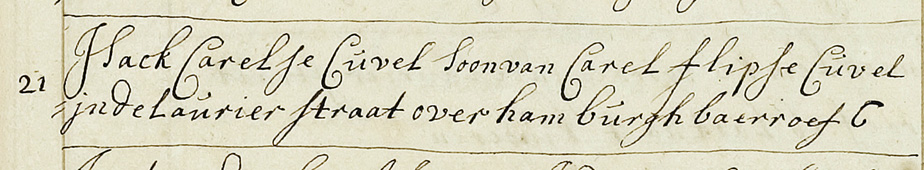 21 Isack Carelse Cuvel soon van Carel flipse Cuvel
in de Laurier straat over hamburgh baerroef 6